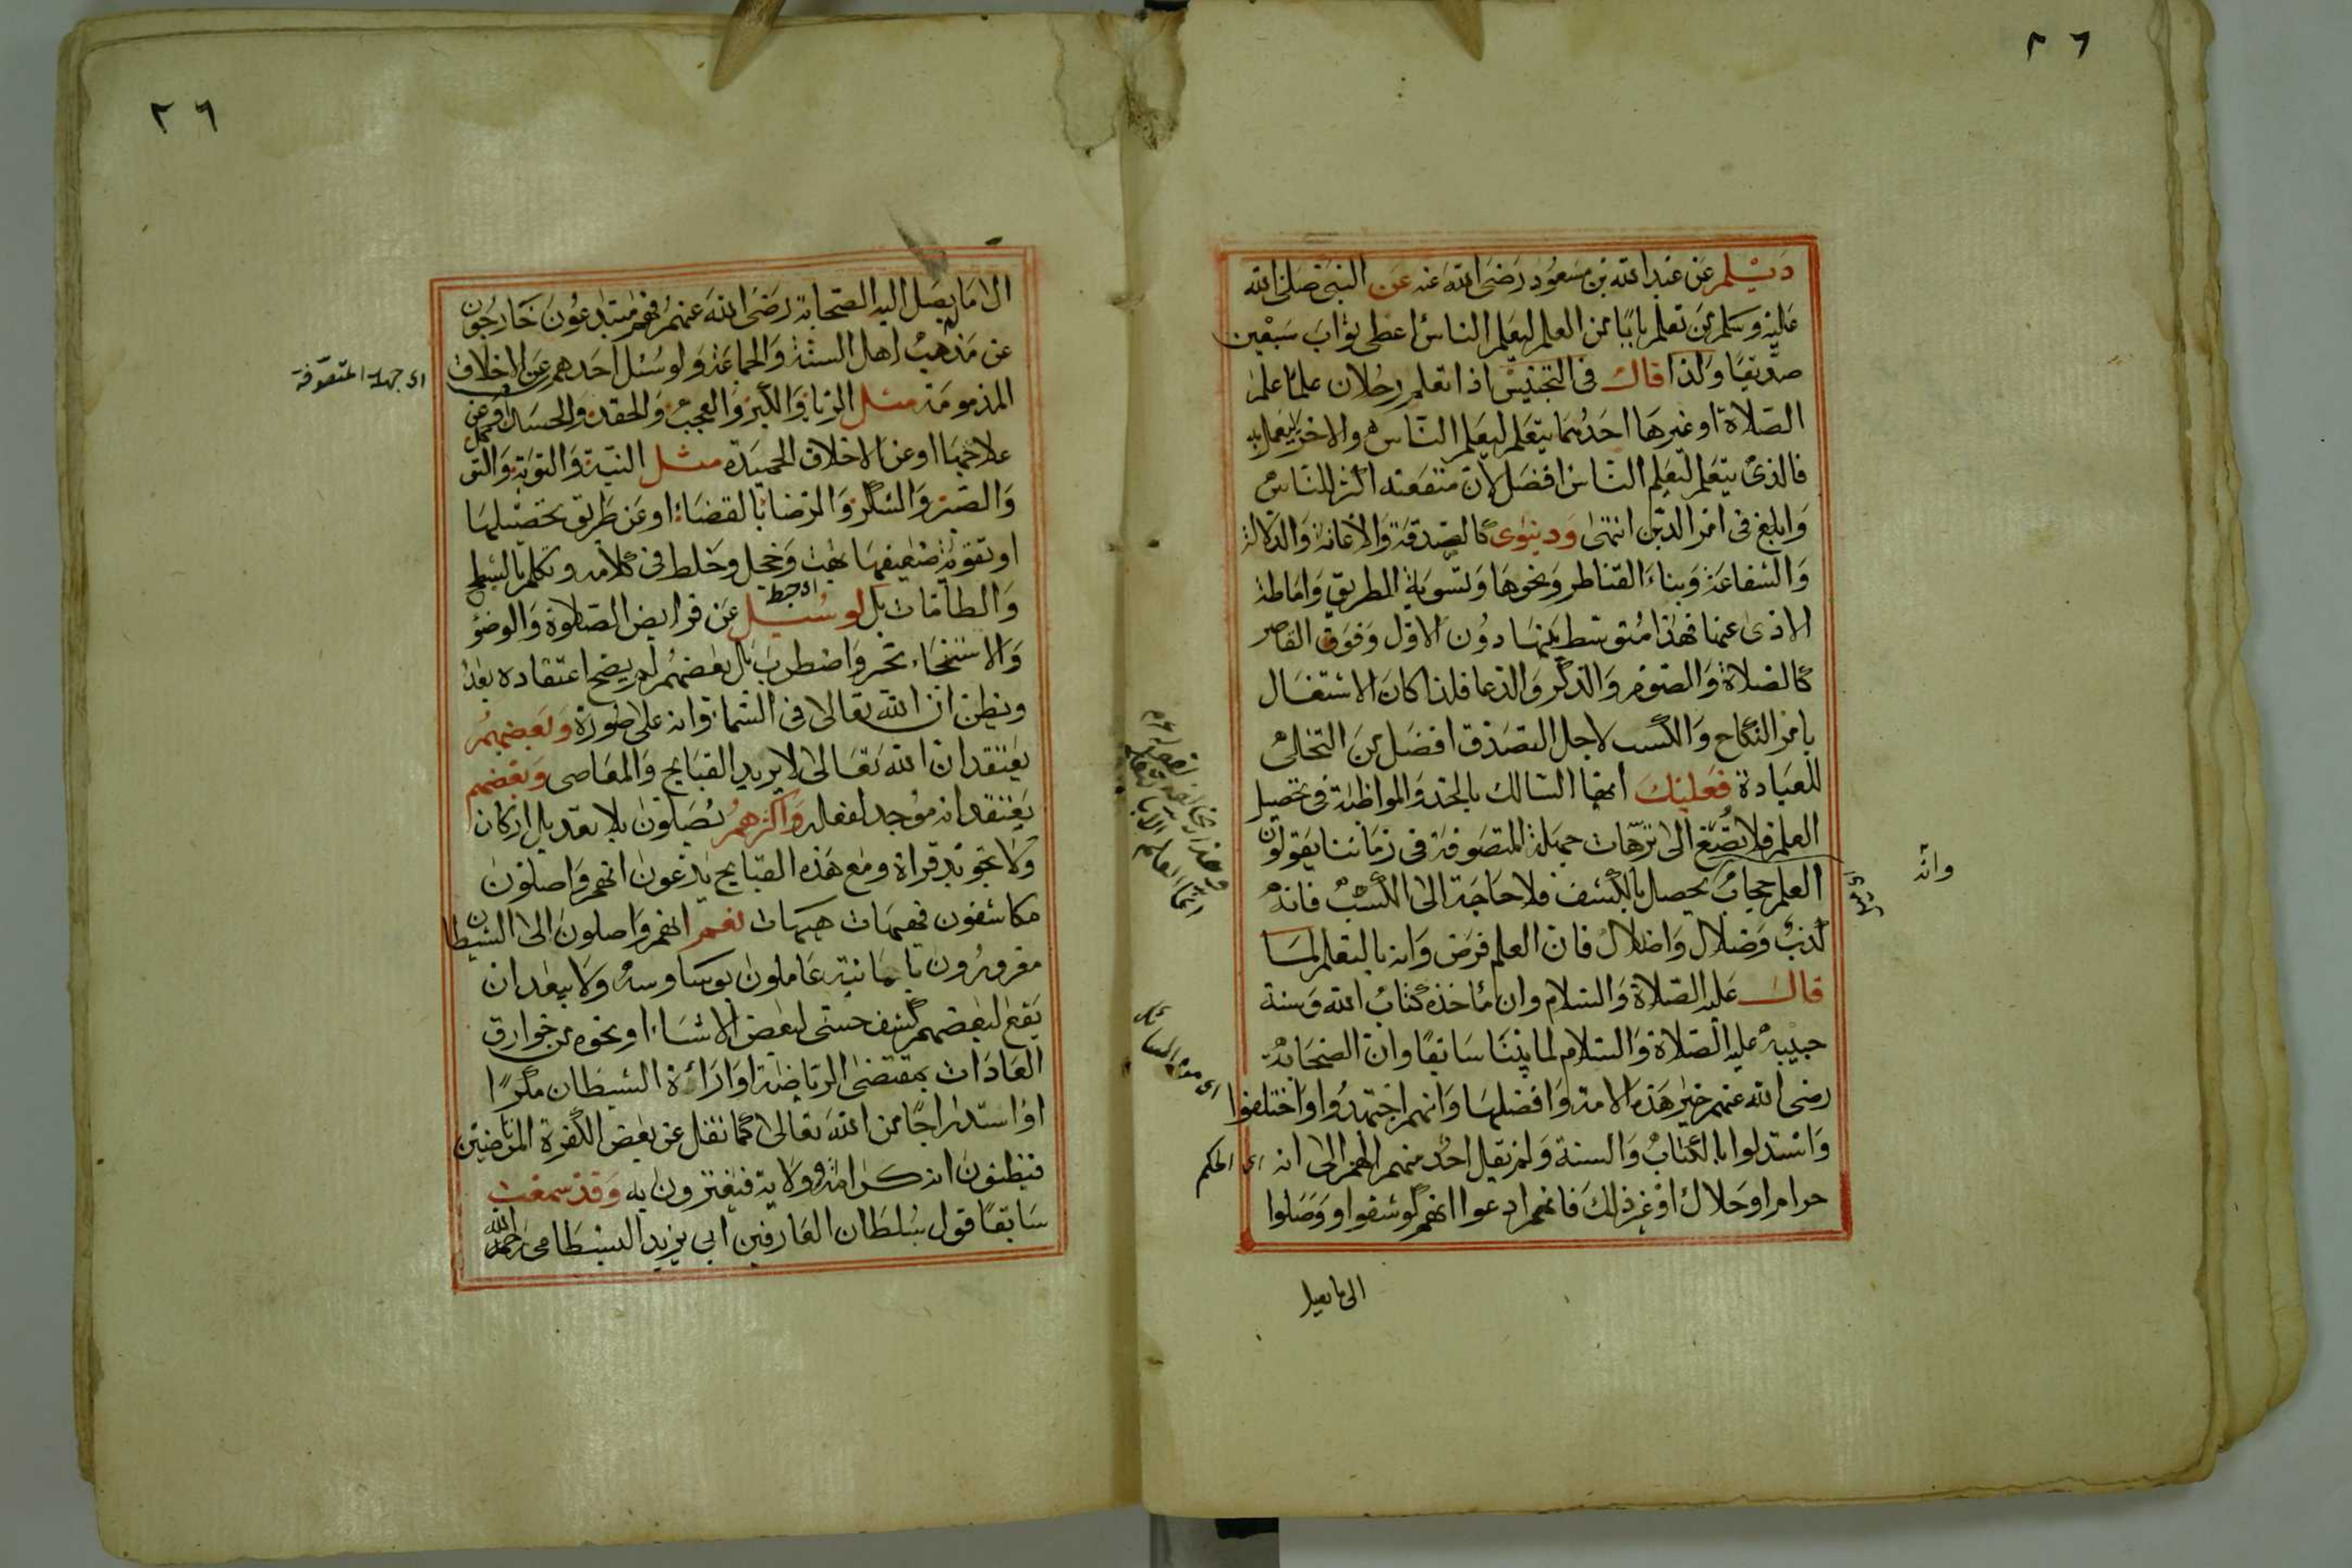 ٢٦
ديلم عن عبد الله بن مسعود رضى الله عنه عن النبى صلى الله
عليه وسلم من تعلم بابا من العلم ليعلم الناس اعطى ثواب سبعين
صديقا ولذا قال فى التجنيس اذا تعلم رجلان علما علم
الصلاة او غيرها احدهما يتعلم ليعلم الناس والاخر ليعمل به
فالذى يتعلم ليعلم الناس افضل لان منفعته اكثر للناس
وابلغ فى امر الدين انتهى ودنيوى كالصدقة والاعانة والدلالة
والشفاعة وبناء القناطر ونحوها وتسوية الطريق واماطة
الاذى عنها فهذا متوسط بينها دون الاول وفوق القاصر
كالصلاة والصوم والذكر والدعا فلذا كان الاشتغال
بامر النكاح والكسب لاجل التصدق افضل من التخلى
للعبادة فعليك ايها السالك بالجد والمواظبة فى تحصيل
العلم فلا تصغ الى ترهات جهلة المتصوفة فى زماننا يقولون
العلم حجاب يحصل بالكشف فلا حاجة الى الكسب فانه
وانه
كذب وضلال واضلال فان العلم فرض وانه بالتعلم لما
قال عليه الصلاة والسلام وان مأخذه كتاب الله وسنة
حبيبه عليه الصلاة والسلام لما بيننا سابقا وان الصحابة
رضى الله عنهم خير هذه الامة وافضلها وانهم اجتهدوا واختلفوا
واستدلوا بالكتاب والسنة ولم يقل احد منهم الهم الى انه
اى الحكم
حرام او حلال او غير ذلك فانهم ادعوا انهم كوشفوا ووصلوا
الى ما يصل
٢٦
الا ما يصل اليه الصحابة رضى الله عنهم فهم مبتدعون خارجون
عن مذهب اهل السنة والجماعة ولو سئل احدهم عن الاخلاق
اى جهلة المتصوفة
المذمومة مثل الريا والكبر والعجب والحقد والحسد او عن
علاجها او عن الاخلاق الحميدة مثل النية والتوبة والتوكل
والصبر والشكر والرضا بالقضاء او عن طريق تحصيلها
او تقوية ضعيفها بهت وخجل وخلط فى كلامه وتكلم بالشطح
والطامات بل لو سئل عن فرايض الصلوة والوضؤ
اى خبط
والاستنجاء تحر واضطرب بل بعضهم لم يصح اعتقاده بعد
ويظن ان الله تعالى فى السماء وانه على صورة وبعضهم
يعتقد ان الله تعالى لا يريد القبايح والمعاصى وبعضهم
يعتقد انه موجد لفعله واكثرهم يصلون بلا تعديل اركان
ولا تجويد قراة ومع هذه القبايح يدعون انهم واصلون
مكاشفون فهيهات هيهات نعم انهم واصلون الى الشيطان
مغرورون بامانيه عاملون بوساوسه ولا يبعد ان
يقع لبعضهم كشف حسى لبعض الاشياء او نحوه من خوارق
العادات بمقتضى الرياضة او اراءة الشيطان مكرا
او استدراجا من الله تعالى كما نقل عن بعض الكفرة المرتاضين
فيظنون انه كرامة وولاية فيغترون به وقد سمعت
سابقا قول سلطان العارفين ابى يزيد البسطامى رحمه الله